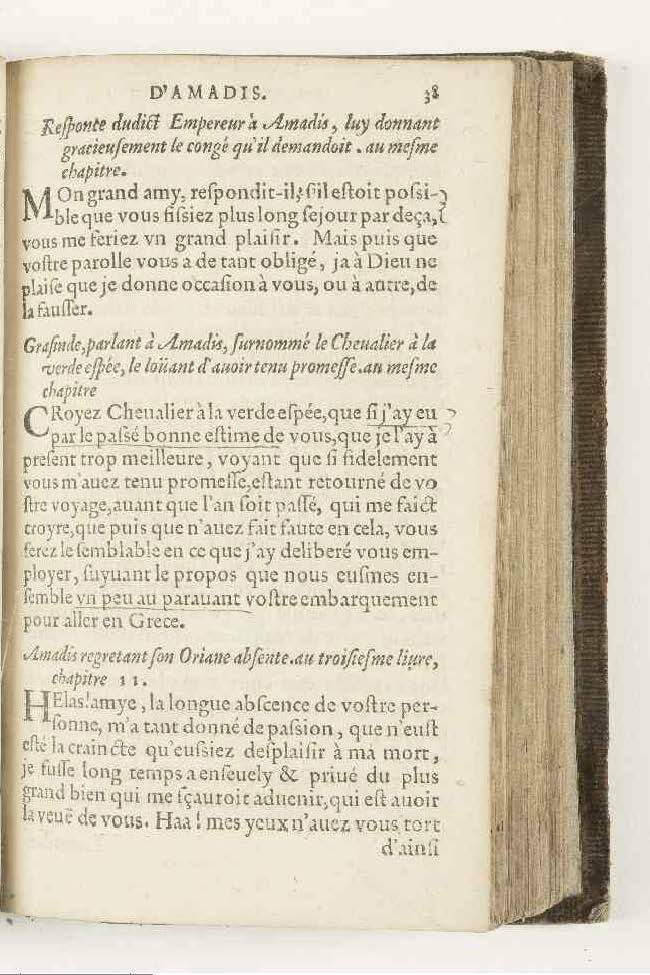 D'AMADIS. 38
Responce dudict Empereur à Amadis, luy donnant
gracieusement le congé qu'il demandoit. au mesme
chapitre.
MOn grand amy, respondit-il, s'il estoit possi-
ble que vous fissiez plus long sejour par deça,
vous me feriez vn grand plaisir. Mais puis que
vostre parolle vous a de tant obligé, ja à Dieu ne
plaise que je donne occasion à vous, ou à autre, de
la fausser.
Grasinde, parlant à Amadis, surnommé le Cheualier à la
verde espée, le loüant d'auoir tenu promesse. au mesme
chapitre
CRoyez Cheualier à la verde espée, que si j'ay eu
par le passé bonne estime de vous, que je l'ay à
present trop meilleure, voyant que si fidelement
vous m'auez tenu promesse, estant retourné de vo
stre voyage, auant que l'an soit passé, qui me faict
croyre, que puis que n'auez fait faute en cela, vous
ferez le semblable en ce que j'ay deliberé vous em-
ployer, suyuant le propos que nous eusmes en-
semble vn peu au parauant vostre embarquement
pour aller en Grece.
Amadis regretant son Oriane absente. au troisiesme liure,
chapitre 11.
HElas! amye, la longue abscence de vostre per-
sonne, m'a tant donné de passion, que n'eust
esté la craincte qu'eussiez desplaisir à ma mort,
je fusse long temps a enseuely & priué du plus
grand bien qui me sçauroit aduenir, qui est auoir
la veuë de vous. Haa! mes yeux n'auez vous tort
d'ainsi